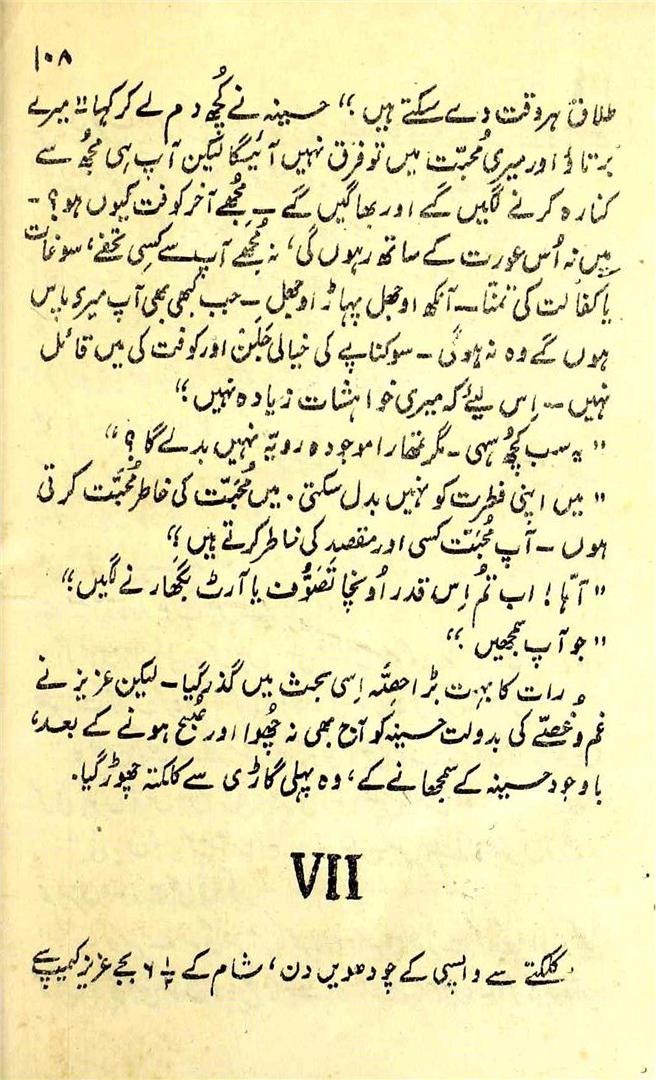 ۱۰۸
طلاق ہر وقت دے سکتے ہیں۔“ حسینہ نے کچھ دم لے کر کہا ”میرے
برتاؤ اور میری مُحبّت میں تو فرق نہیں آئیگا لیکن آپ ہی مجھُ سے
کنارہ کرنے لگیں گے اور بھاگیں گے ـ مُجھے آخر کوفت کیوں ہو؟ ـ
میں نہ اُس عورت کے ساتھ رہوں گی، نہ مُجھے آپ سے کِسی تحفے، سوغات
یا کفالت کی تمنّا ـ آنکھ اوجھل پہاڑ اوجھل ـ جب کبھی بھی آپ میری پاس
ہوں گے وہ نہ ہوگی ـ سوکناپے کی خیالی جلن اور کوفت کی میں قائل
نہیں ـ اِس لیئے کہ میری خواہشات زیادہ نہیں“
”یہ سب کچھُ سہی ـ مگر تمھارا موجودہ رویّہ نہیں بدلے گا؟“
”میں اپنی فطرت کو نہیں بدل سکتی۔ میں مُحبّت کی خاطر مُحبّت کرتی
ہوں ـ آپ مُحبّت کسی اور مقصد کی خاطر کرتے ہیں“
”آہّا! اب تُم اِس قدر اُونچا تَصَوُّف یا آرٹ بگھارنے لگیں“
”جو آپ سمجھیں“
رات کا بہت بڑا حِصّہ اِسی بحث میں گذر گیا ـ لیکن عزیز نے
غم و غصّے کی بدولت حسینہ کو آج بھی نہ چھُوا اور صُبح ہونے کے بعد،
باوجود حسینہ کے سمجھانے کے، وہ پہلی گاڑی سے کلکتہ چھوڑ گیا۔
VII
کلکتے سے واپسی کے چودھویں دن، شام کے ۶½ بجے عزیز کیمپ سے